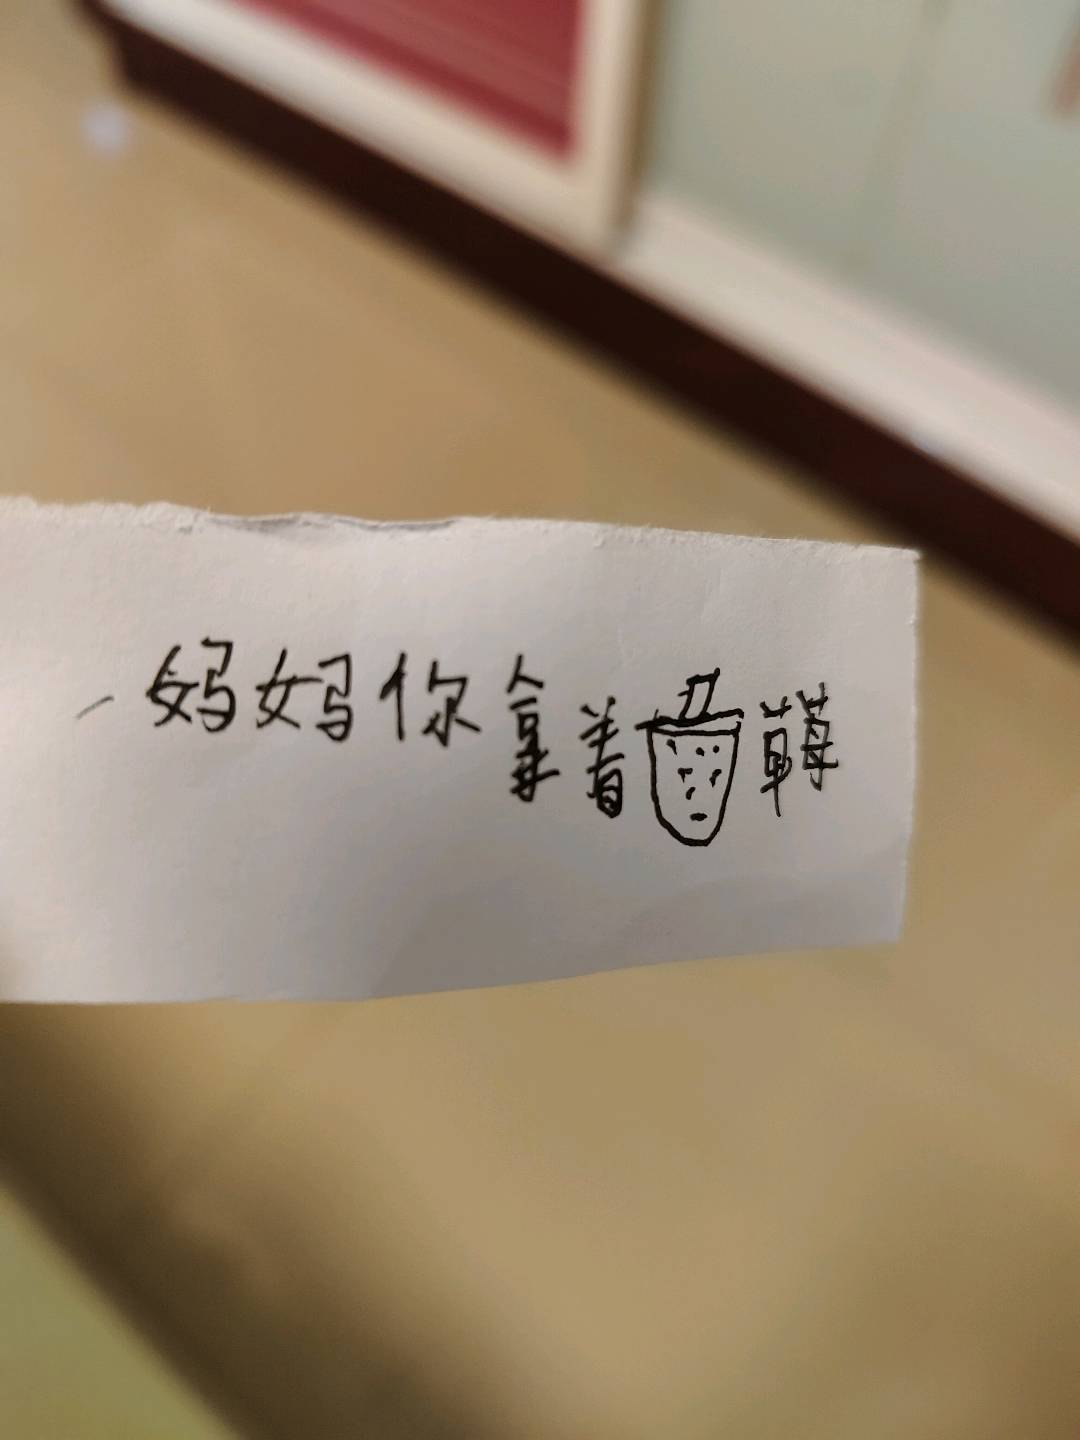 妈妈你拿着草莓